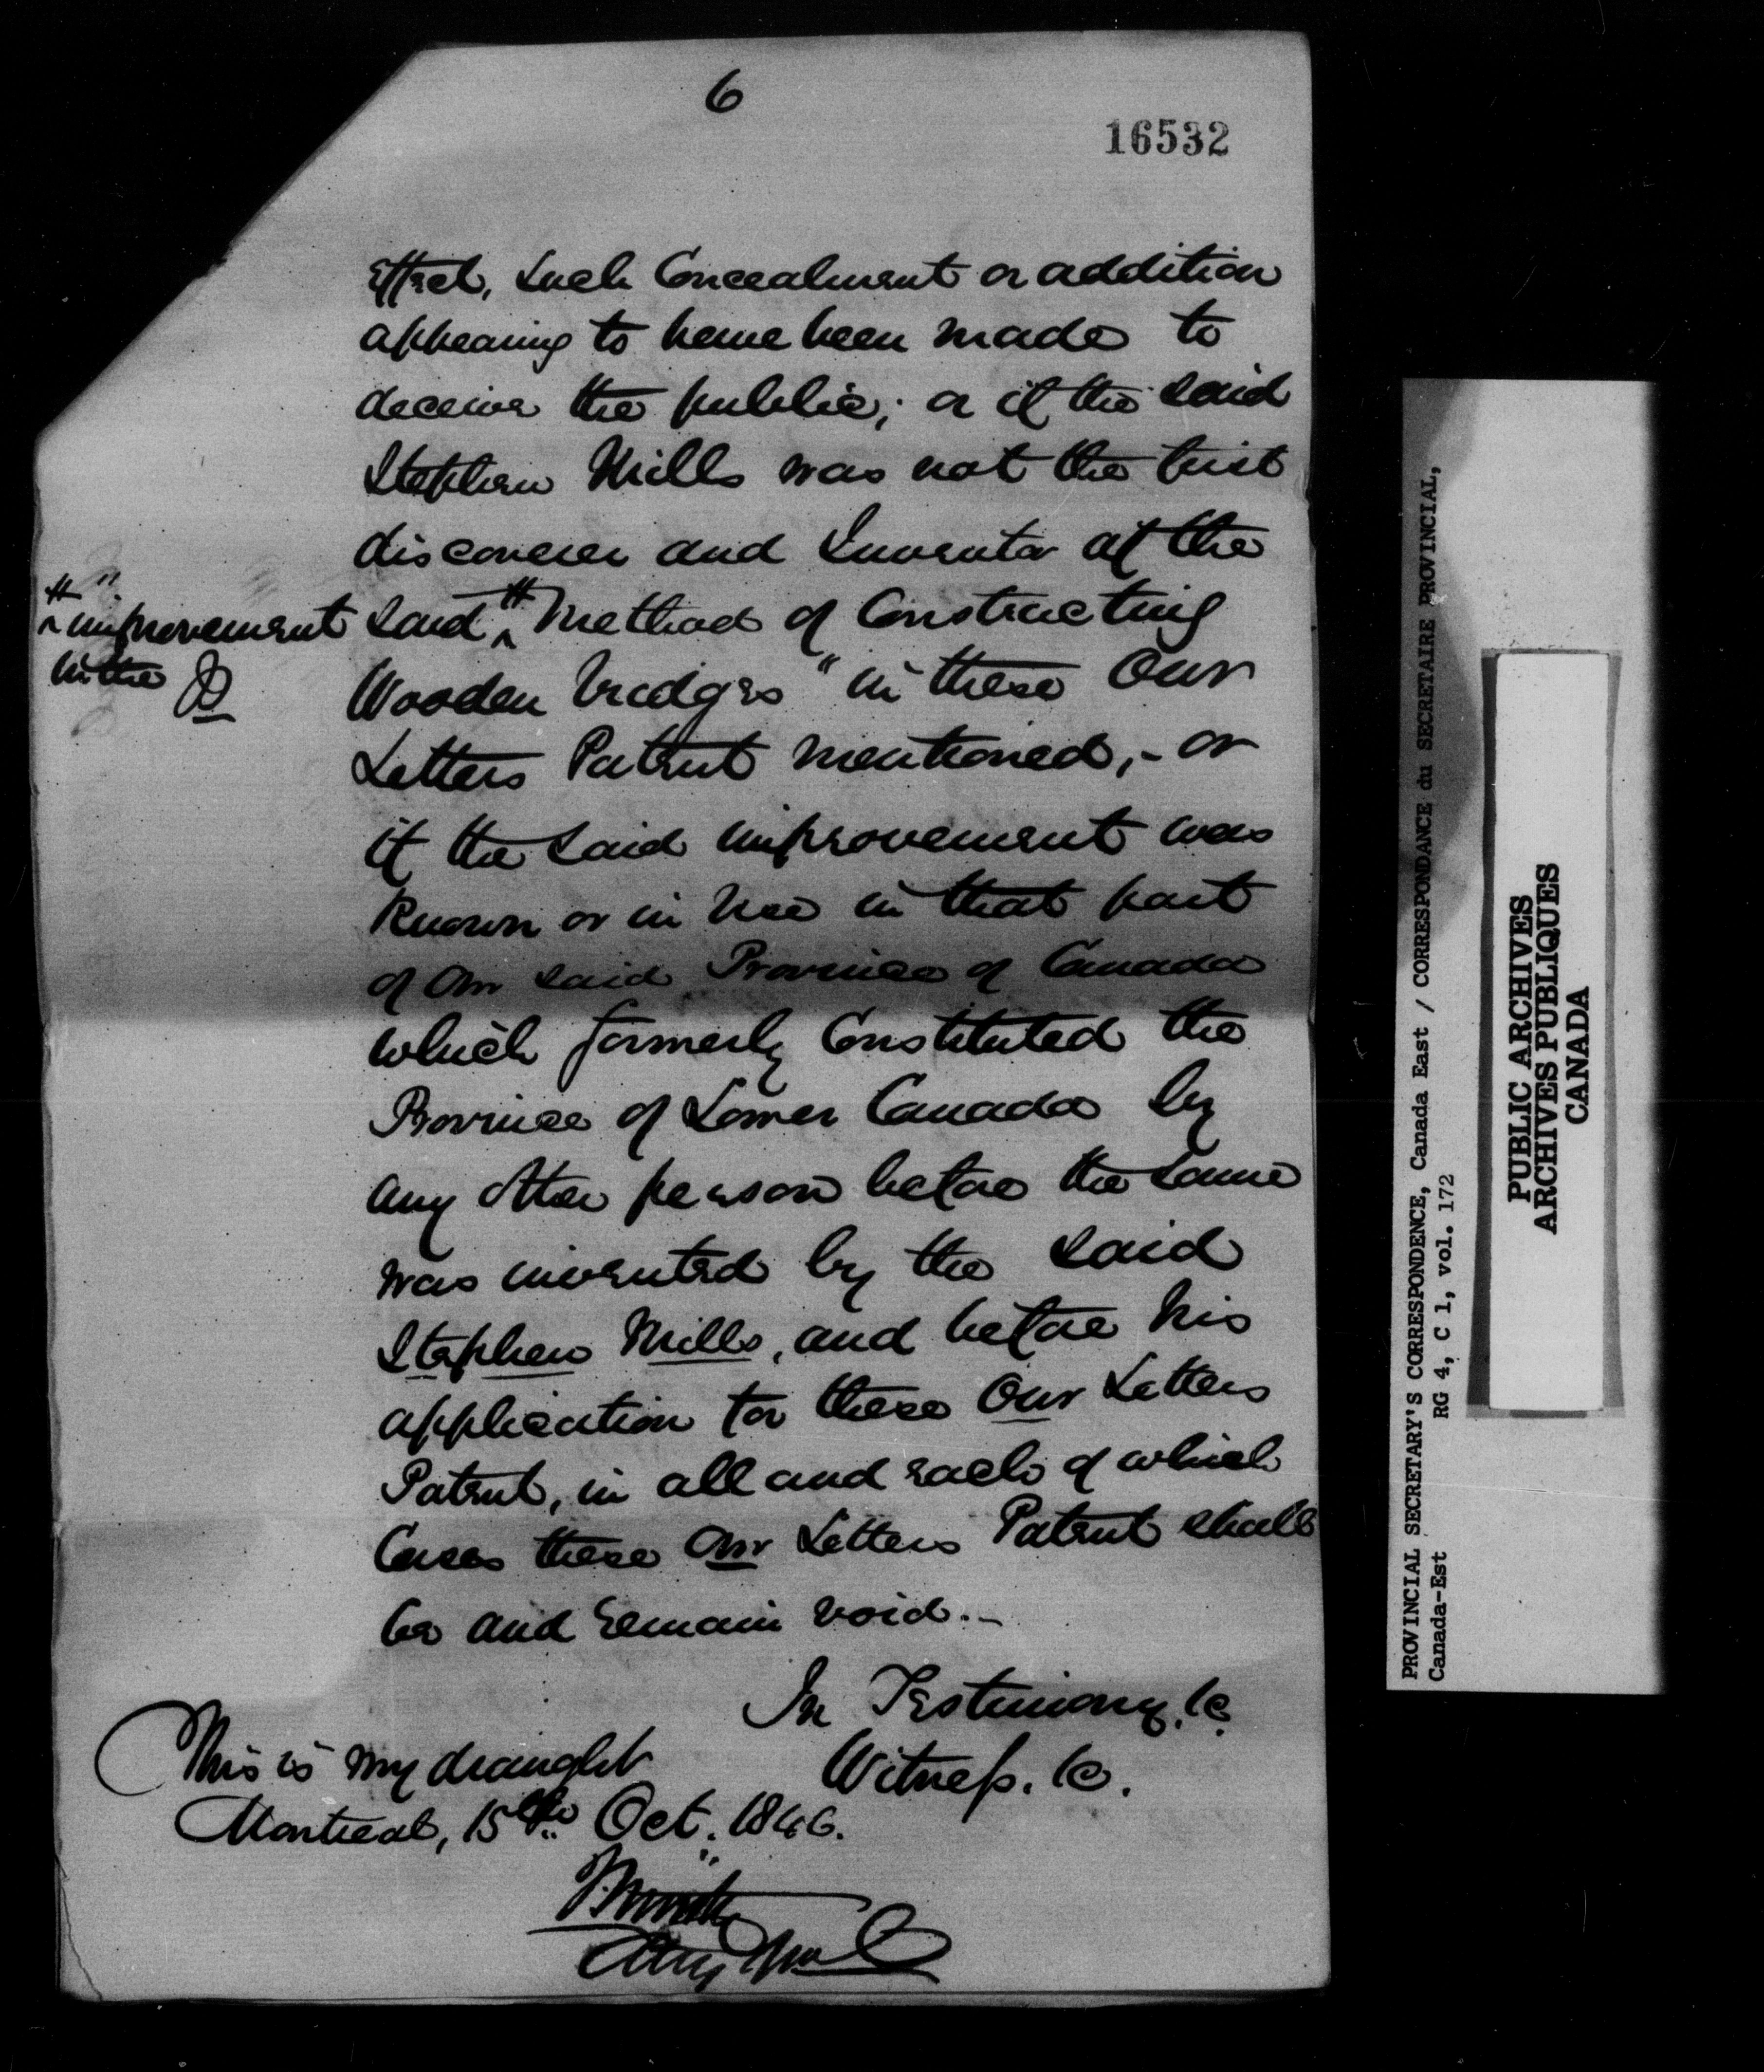 6
16532
effect, such Concealment or addition
appearing to have been made to
deceive the public; or if the said
Stephen Mills was not the first
discoverer and Inventor of the
said "Method of Constructing
"improvement
in the
Wooden bridges" in these Our
Letters Patent mentioned,- or
if the said improvement was
known or in use in that part
of Our said Province of Canada
which formerly Constituted the
Province of Lower Canada by
any other person before the same
was invented by the said
Stephen Mills, and before his
application for these Our Letters
Patent, in all and each of which
Cases these Our Letters Patent shall
be and remain void.-
In Testimony, &c.
Witness. &c.
This is my draught
Montreal, 15th Oct. 1846.
Atty Genl
PROVINCIAL SECRETARY'S CORRESPONDENCE, Canada East / CORRESPONDANCE du SECRETAIRE PROVINCIAL,
Canada-Est RG 4, C 1, vol. 172
PUBLIC ARCHIVES
ARCHIVES PUBLIQUES
CANADA